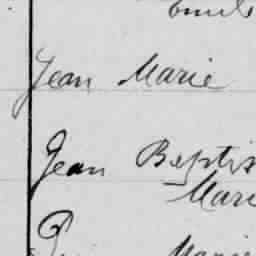 Emile
Jean Marie
Jean Baptis
Mari
Marie